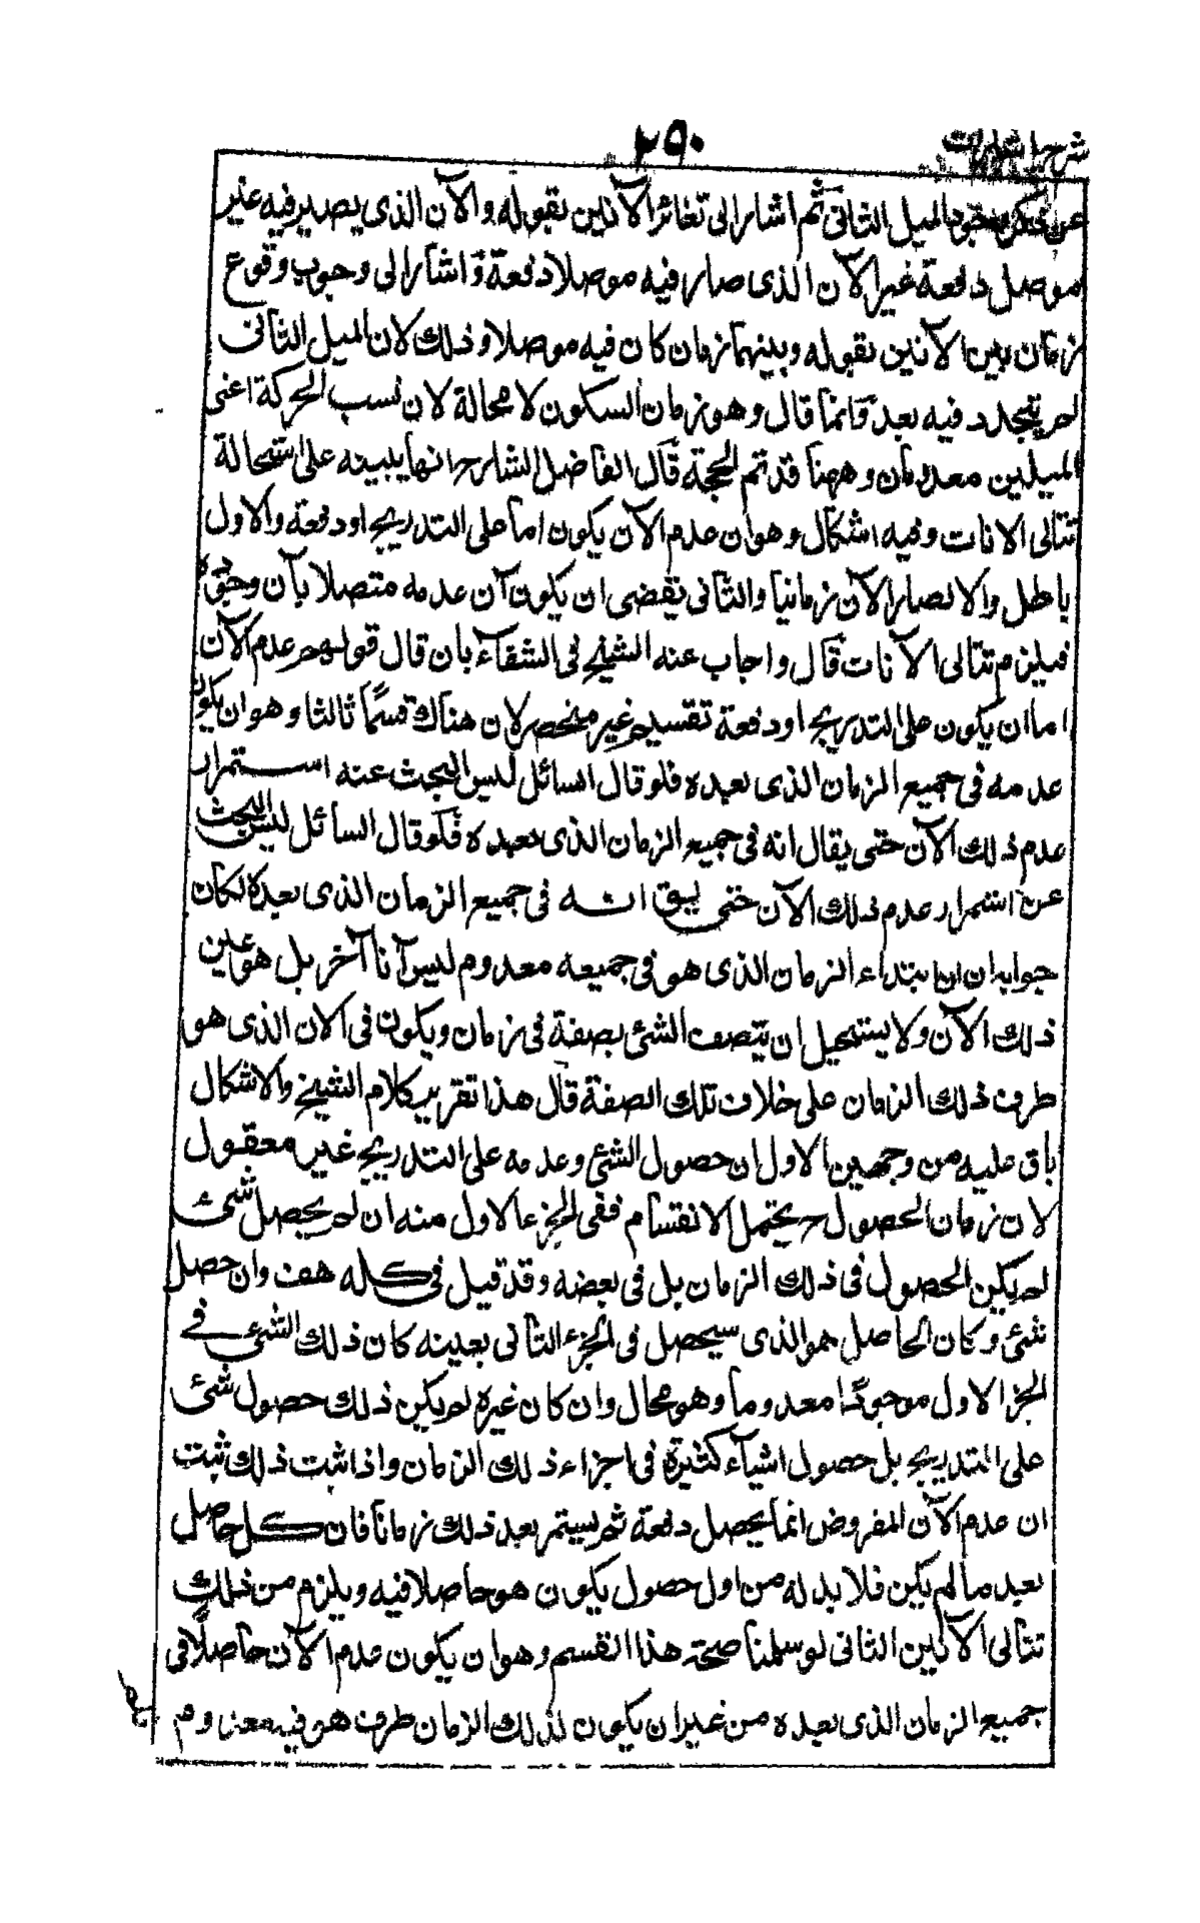 شرح اشارات
٢٩٠
عن وجود الميل الثانى ثم اشار الى تغائر الآنين بقوله والآن الذى يصير فيه غير
موصل دفعة غير الآن الذى صار فيه موصلا دفعة وَاشار الى وجوب وقوع
زمان بين الآنين بقوله وبينهما زمان كان فيه موصلا وذلك لان الميل الثانى
لم يتجدد فيه بعد وَانما قال وهو زمان السكون لا محالة لان نسب الحركة اعنى
الميلين معدومان وههنا قد تم الحجة قال الفاضل الشارح انها يبينه على استحالة
تتالى الانات وفيه اشكال وهو ان عدم الآن يكون اما على التدريج او دفعة والاول
باطل والا لصار الآن زمانيا والثانى يقضى ان يكون آن عدمه متصلا بآن وجوده
فيلزم تتالى الآنات قال واجاب عنه الشيخ فى الشفآء بان قال قولهم عدم الآن
اما ان يكون على التدريج او دفعة تقسيم غير منحصر لان هناك قسمًا ثالثا وهو ان يكون
عدمه فى جميع الزمان الذى بعده فلو قال السائل ليس البحث عنه استمرار
عدم ذلك الآن حتى يقال انه فى جميع الزمان الذى بعده فلو قال السائل ليس البحث
عن استمرار عدم ذلك الآن حتى يق انه فى جميع الزمان الذى بعده لكان
جوابه ان ابتداء الزمان الذى هو فى جميعه معدوم ليس آنا آخر بل هو عين
ذلك الآن ولا يستحيل ان يتصف الشئ بصفة فى زمان ويكون فى الان الذى هو
طرف ذلك الزمان على خلاف تلك الصفة قال هذا تقرير كلام الشيخ والاشكال
باق عليه من وجهين الاول ان حصول الشئ وعدمه على التدريج غير معقول
لان زمان الحصول ح يحتمل الانقسام ففى الجزء الاول منه ان لم يحصل شئ
لم يكن الحصول فى ذلك الزمان بل فى بعضه وقد قيل فى كله هف وان حصل
شئ وكان الحاصل هو الذى سيحصل فى الجزء الثانى بعينه كان ذلك الشئ فى
الجزء الاول موجودًا معدوما وهو محال وان كان غيره لم يكن ذلك حصول شئ
على التدريج بل حصول اشيآء كثيرة فى اجزاء ذلك الزمان واذا ثبت ذلك ثبت
ان عدم الآن المفروض انما يحصل دفعة ثم يستمر بعد ذلك زمانا فان كل حاصل
بعد ما لم يكن فلا بد له من اول حصول يكون هو حاصلا فيه ويلزم من ذلك
تتالى الآنين الثانى لو سلمنا صحة هذا القسم وهو ان يكون عدم الآن حاصلًا فى
جميع الزمان الذى بعده من غير ان يكون لذلك الزمان طرف هو فيه معدوم